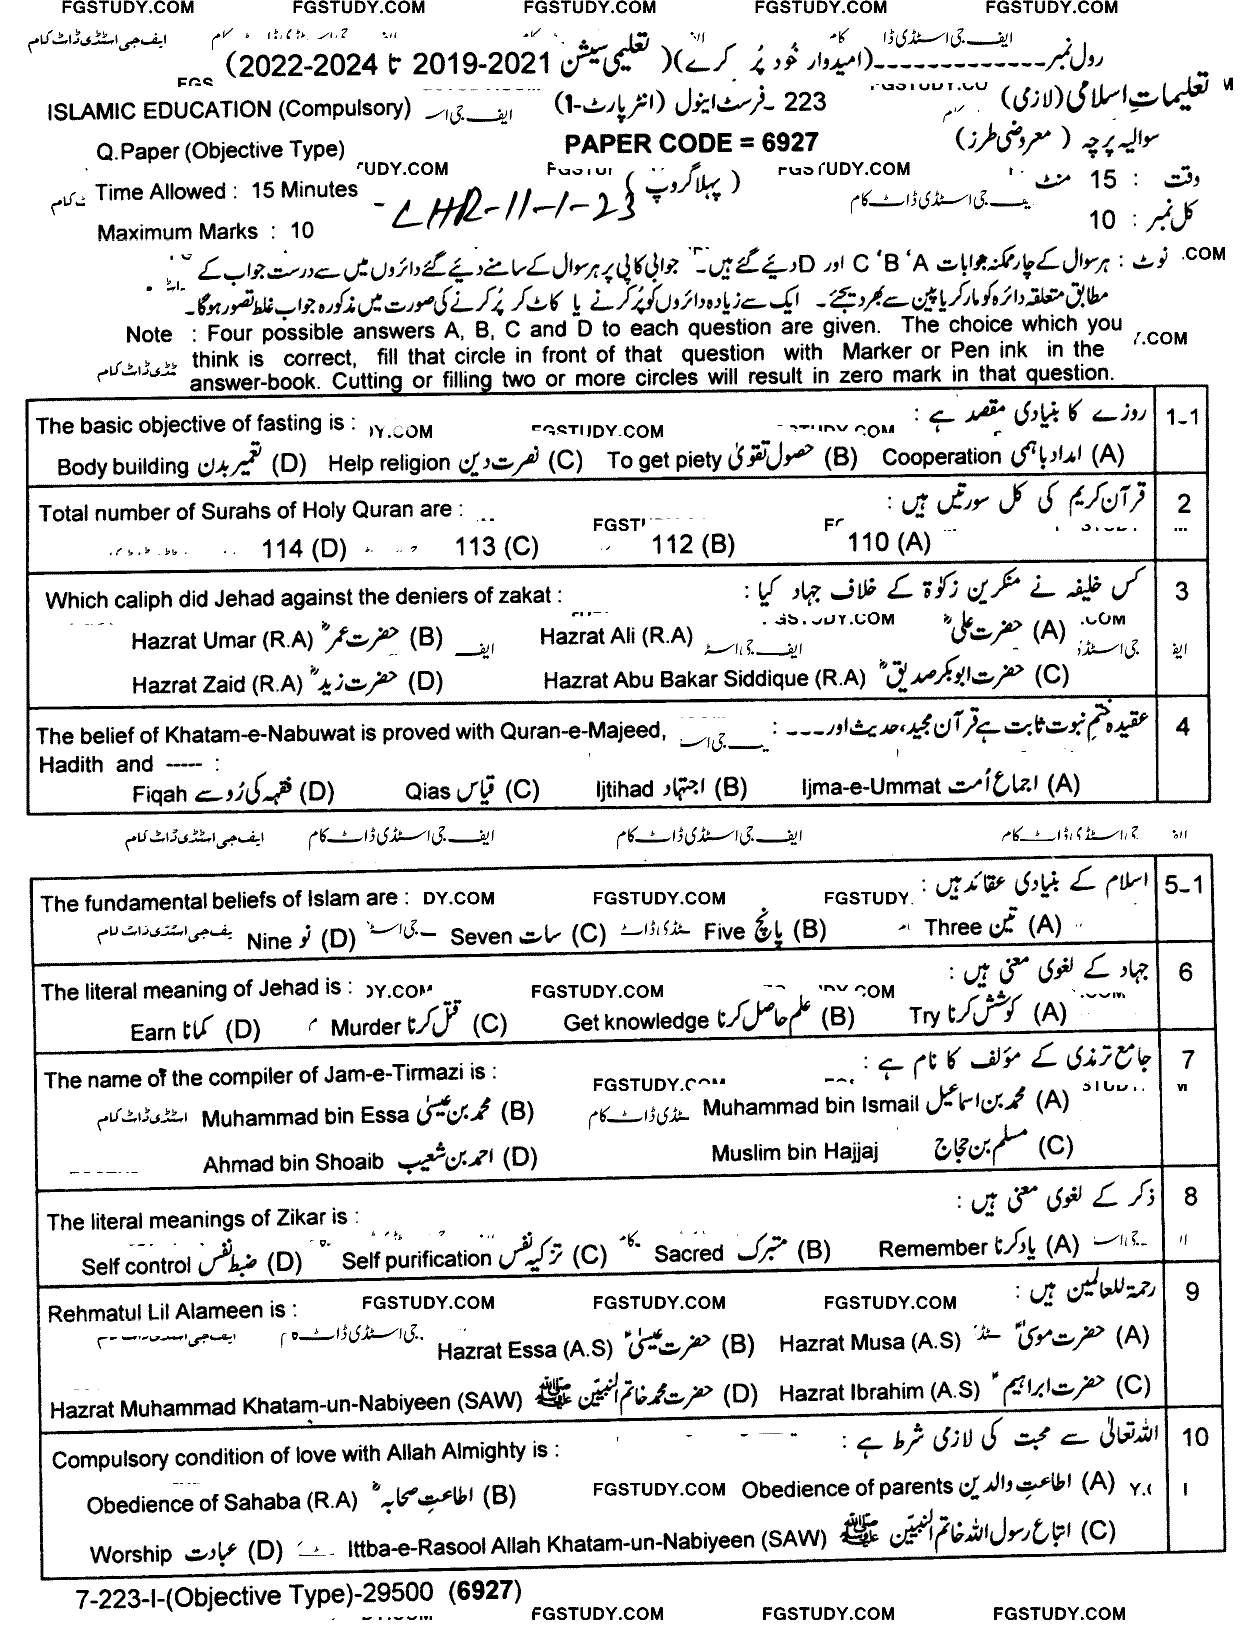 FGSTUDY.COM FGSTUDY.COM FGSTUDY.COM FGSTUDY.COM FGSTUDY.COM
ایف جی اسٹڈی ڈاٹ کام
رول نمبر-------------(امیدوار خود پُر کرے)( تعلیمی سیشن 2021-2019 تا 2024-2022)
تعلیمات اسلامی (لازمی) 223 ۔فرسٹ اینول (انٹر پارٹ-1) ISLAMIC EDUCATION (Compulsory)
سوالیہ پرچہ ( معروضی طرز) PAPER CODE = 6927 Q.Paper (Objective Type)
وقت : 15 منٹ ( پہلا گروپ ) Time Allowed : 15 Minutes
LHR-11-1-23
کل نمبر : 10 Maximum Marks : 10
نوٹ : ہر سوال کے چار ممکنہ جوابات A ‘B ‘C اور D دیئے گئے ہیں۔ جوابی کاپی پر ہر سوال کے سامنے دیئے گئے دائروں میں سے درست جواب کے
مطابق متعلقہ دائرہ کو مارکر یا پین سے بھر دیجئے۔ ایک سے زیادہ دائروں کو پُر کرنے یا کاٹ کر پُر کرنے کی صورت میں مذکورہ جواب غلط تصور ہوگا۔
Note : Four possible answers A, B, C and D to each question are given. The choice which you
think is correct, fill that circle in front of that question with Marker or Pen ink in the
answer-book. Cutting or filling two or more circles will result in zero mark in that question.
1-1 روزے کا بنیادی مقصد ہے : The basic objective of fasting is :
(A) امداد باہمی Cooperation (B) حصول تقویٰ To get piety (C) نصرت دین Help religion (D) تعمیر بدن Body building
2 قرآن کریم کی کل سورتیں ہیں : Total number of Surahs of Holy Quran are :
110 (A) 112 (B) 113 (C) 114 (D)
3 کس خلیفہ نے منکرین زکوٰۃ کے خلاف جہاد کیا : Which caliph did Jehad against the deniers of zakat :
(A) حضرت علیؓ Hazrat Ali (R.A) (B) حضرت عمرؓ Hazrat Umar (R.A)
(C) حضرت ابوبکر صدیقؓ Hazrat Abu Bakar Siddique (R.A) (D) حضرت زیدؓ Hazrat Zaid (R.A)
4 عقیدہ ختم نبوت ثابت ہے قرآن مجید، حدیث اور۔۔۔۔ : The belief of Khatam-e-Nabuwat is proved with Quran-e-Majeed,
Hadith and ----- :
(A) اجماع اُمت Ijma-e-Ummat (B) اجتہاد Ijtihad (C) قیاس Qias (D) فقہہ کی رُو سے Fiqah
ایف جی اسٹڈی ڈاٹ کام ایف جی اسٹڈی ڈاٹ کام ایف جی اسٹڈی ڈاٹ کام
5-1 اسلام کے بنیادی عقائد ہیں : The fundamental beliefs of Islam are :
(A) تین Three (B) پانچ Five (C) سات Seven (D) نو Nine
6 جہاد کے لغوی معنی ہیں : The literal meaning of Jehad is :
(A) کوشش کرنا Try (B) علم حاصل کرنا Get knowledge (C) قتل کرنا Murder (D) کمانا Earn
7 جامع ترمذی کے مؤلف کا نام ہے : The name of the compiler of Jam-e-Tirmazi is :
(A) محمد بن اسماعیل Muhammad bin Ismail (B) محمد بن عیسیٰ Muhammad bin Essa
(C) مسلم بن حجاج Muslim bin Hajjaj (D) احمد بن شعیب Ahmad bin Shoaib
8 ذکر کے لغوی معنی ہیں : The literal meanings of Zikar is :
(A) یاد کرنا Remember (B) متبرک Sacred (C) تزکیہ نفس Self purification (D) ضبط نفس Self control
9 رحمۃ للعالمین ہیں : Rehmatul Lil Alameen is :
(A) حضرت موسیٰؑ Hazrat Musa (A.S) (B) حضرت عیسیٰؑ Hazrat Essa (A.S)
(C) حضرت ابراہیمؑ Hazrat Ibrahim (A.S) (D) حضرت محمد خاتم النبیّن ﷺ Hazrat Muhammad Khatam-un-Nabiyeen (SAW)
10 اللہ تعالیٰ سے محبت کی لازمی شرط ہے : Compulsory condition of love with Allah Almighty is :
(A) اطاعتِ والدین Obedience of parents (B) اطاعتِ صحابہؓ Obedience of Sahaba (R.A)
(C) اتباع رسول اللہ خاتم النبیّن ﷺ Ittba-e-Rasool Allah Khatam-un-Nabiyeen (SAW) (D) عبادت Worship
7-223-I-(Objective Type)-29500 (6927)
FGSTUDY.COM FGSTUDY.COM FGSTUDY.COM